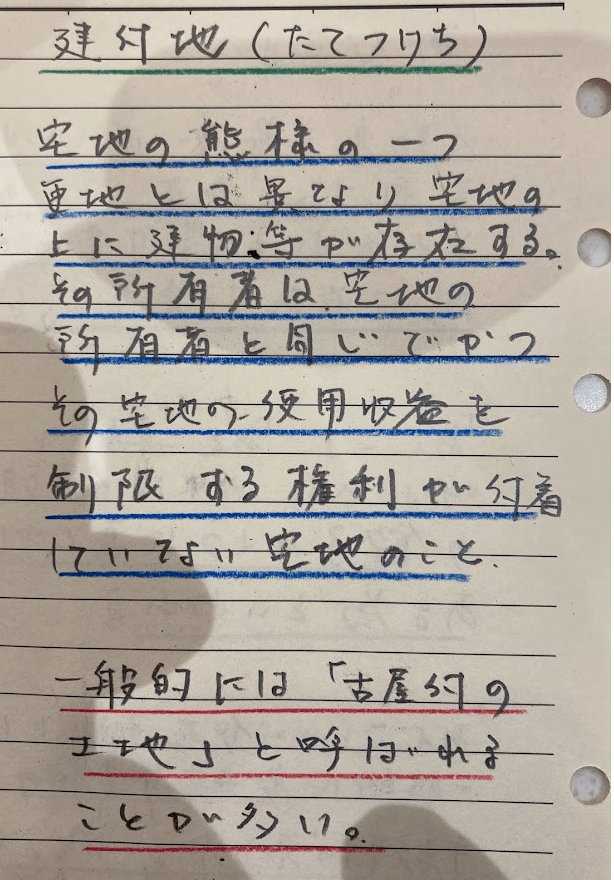 建付地(たてつけち)
宅地の熊様の一つ
更地とは異なり宅地の
上に建物等が存在する。
その所有者は、宅地の
所有者と同じでかつ
その宅地の使用収益を
制限する権利が付着
していない宅地のこと.
一般的には「古屋付の
土地」と呼ばれる
ことが多い。